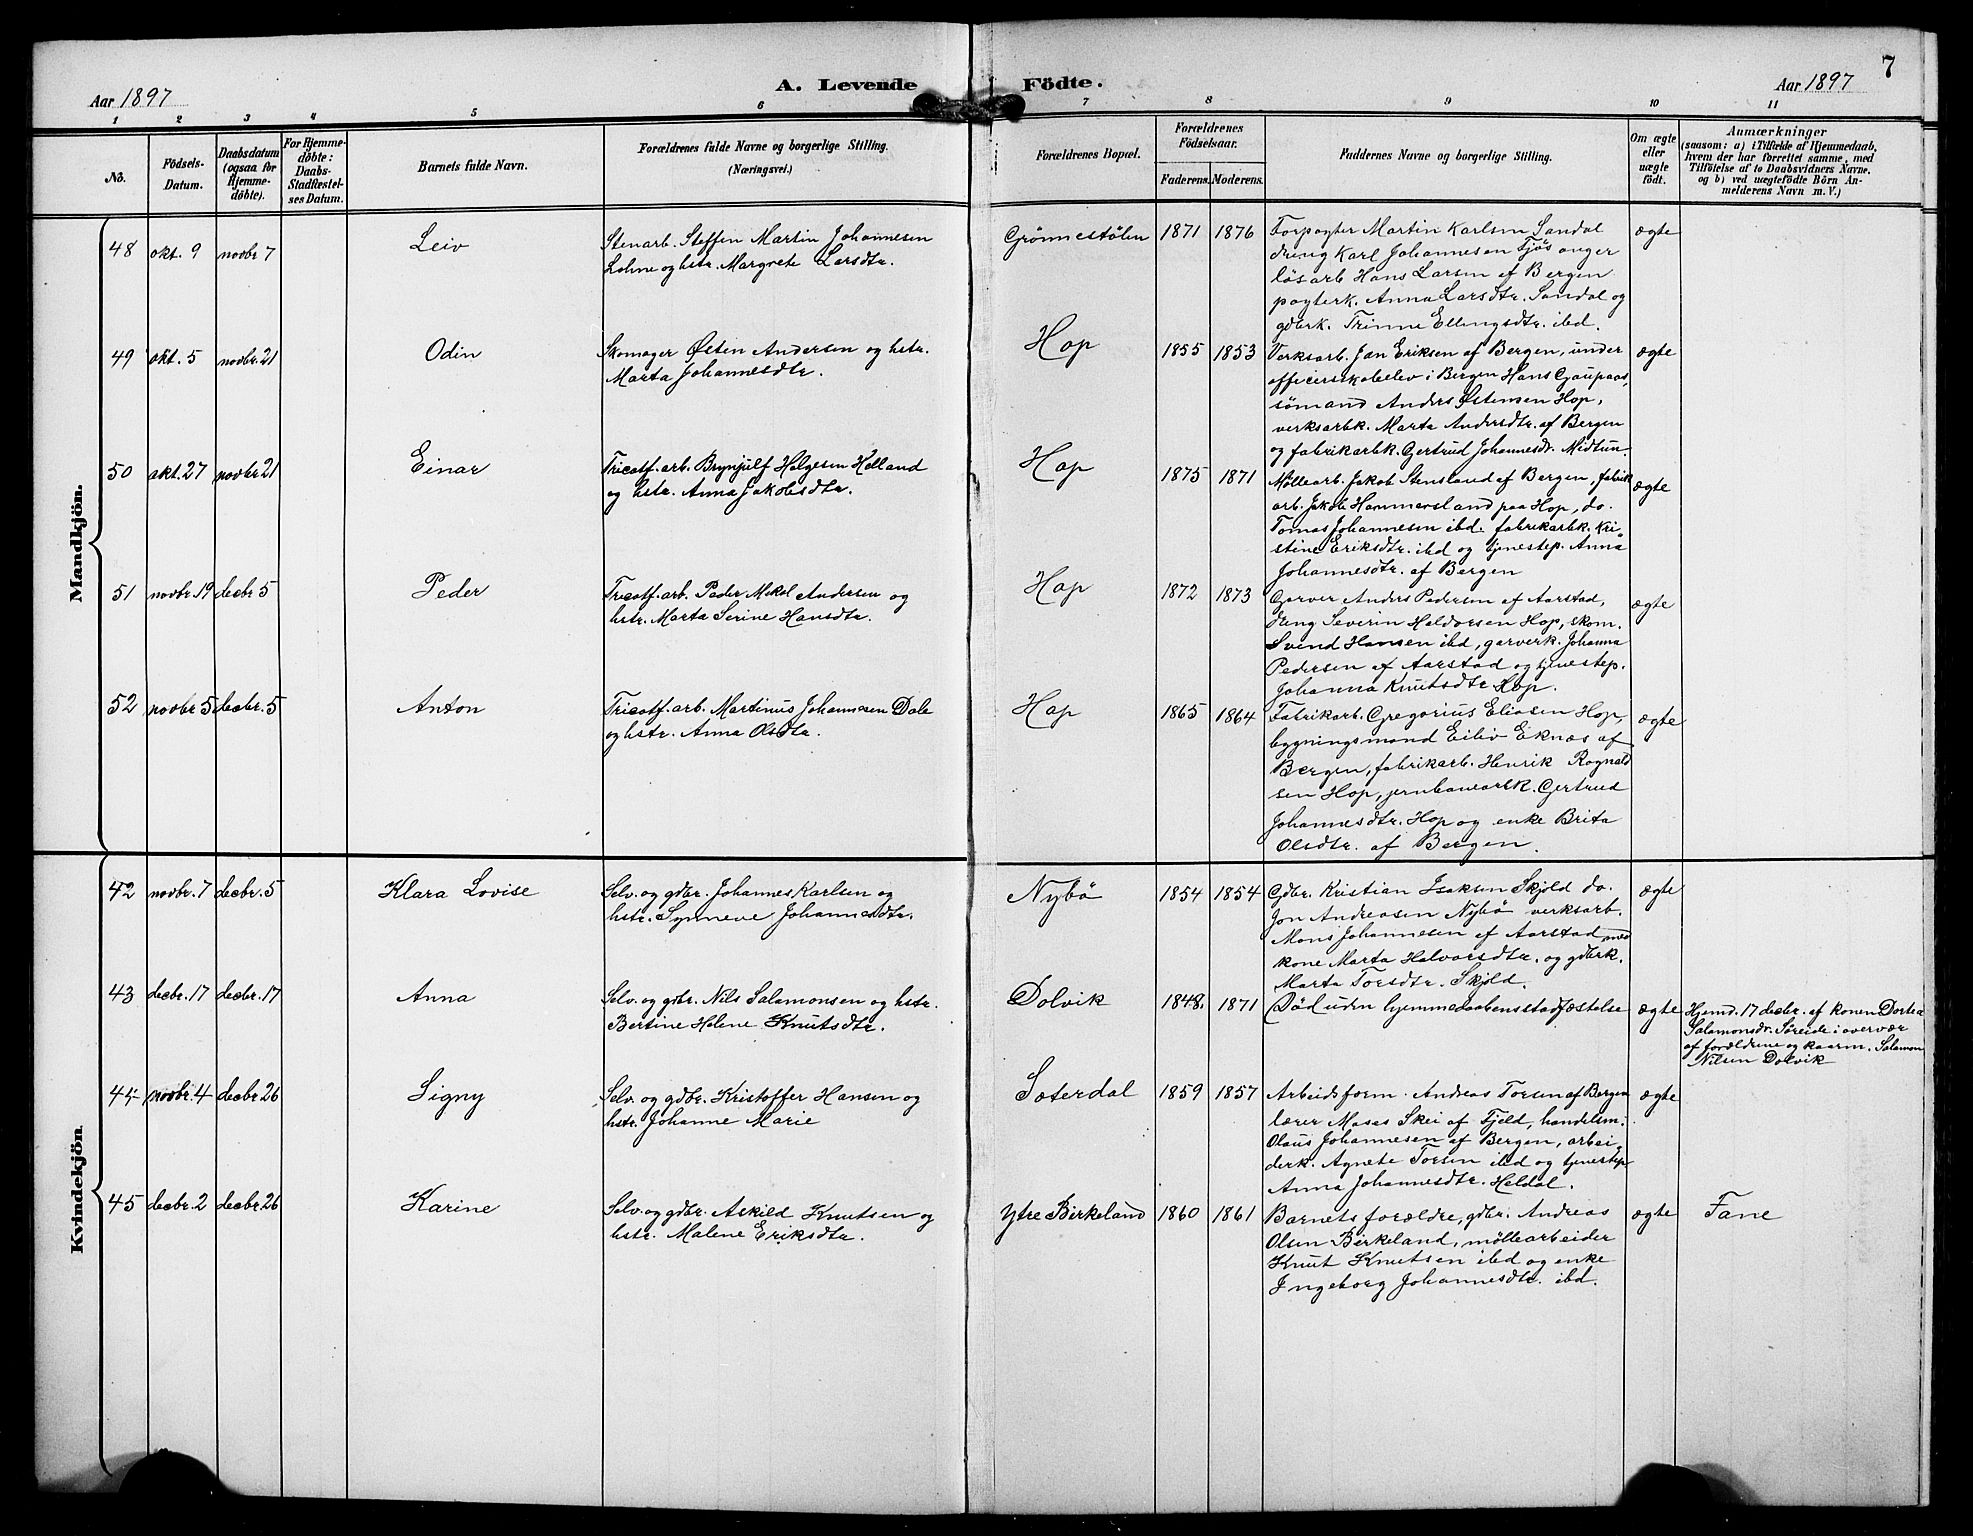 A. Levende Födte.
7
Aar 1897
Aar 1897
1 2 3 4 5 6 7 8 9 10 11
No.
Födsels-
Datum.
Daabsdatum
(ogsaa for
Hjemme-
døbte).
For Hjemme-
døbte:
Daabs-
Stadfæstel-
ses Datum.
Barnets fulde Navn.
Forældrenes fulde Navne og borgerlige Stilling.
(Næringsvei.)
Forældrenes Bopæl.
Forældrenes
Födselsaar.
Faderens. Moderens.
Faddernes Navne og borgerlige Stilling.
Om ægte
eller
uægte
födt.
Anmærkninger
(saasom: a) i Tilfælde af Hjemmedaab,
hvem der har forrettet samme, med
Tilföielse af to Daabsvidners Navne.
og b) ved uægtefödte Börn An-
melderens Navn m. V.)
Mandkjön.
48 okt. 9 novbr 7
Leiv
Stenarb. Steffen Martin Johannesen
Lohne og hstr. Margrete Larsdtr.
Grönnestölen 1871 1876
Forpagter Martin Karlsen Sandal
dreng Karl Johannesen Fjösanger
lösarb Hans Larsen af Bergen
pagterk. Anna Larsdtr. Sandal og
gdbrk. Trinne Ellingsdtr. ibd.
ægte
49 okt. 5 novbr. 21
Odin
Skomager Østen Andersen og hstr.
Marta Johannesdtr.
Hop 1855 1853
Verksarb. Jan Eriksen af Bergen, under
officersskoleelev i Bergen Hans Gaupaas,
sömand Anders Østensen Hop,
verksarbk. Marta Andersdtr. af Bergen
og fabrikarbk. Gertrud Johannesdr. Midtun.
ægte
50 okt. 27 novbr 21
Einar
Tricotf. arb. Brynjulf Helgesen Helland
og hstr. Anna Jakobsdtr.
Hop 1875 1871
Møllearb. Jakob Stensland af Bergen, fabrik
arb. Jakob Hammersland paa Hop, do.
Tomas Johannesen ibd. fabrikarbk. Kri-
stine Eriksdtr. ibd og tjenestep. Anna
Johannesdtr. af Bergen
ægte
51 novbr. 19 decbr 5
Peder
Tricotf. arb. Peder Mikal Andersen og
hstr. Marta Serine Hansdtr.
Hop 1872 1873
Garver Anders Pedersen af Aarstad,
dreng Severin Haldorsen Hop, skom.
Svend Hansen ibd, garverk. Johanna
Pedersen af Aarstad og tjenestep.
Johanna Knutsdtr Hop.
ægte
52 novbr 5 decbr. 5
Anton
Tricotf. arb. Martinus Johannesen Dale
og hstr. Anna Olsdtr.
Hop 1865 1864
Fabrikarb. Gregorius Eliasen Hop,
bygningsmand Eiliv Eknæs af
Bergen, fabrikarb. Henrik Rognald
sen Hop, jernbanearbk. Gertrud
Johannesdtr. Hop og enke Brita
Olsdtr. af Bergen.
ægte
Kvindekjön.
42 novbr. 7 decbr. 5
Klara Lovise
Selv. og gdbr. Johannes Karlsen og
hstr. Synneve Johannesdtr.
Nybö 1854 1854
Gdbr. Kristian Isaksen Skjold do.
Jon Andreasen Nybö verksarb.
Mons Johannesen af Aarstad med
kone Marta Halvorsdtr. og gdbrk.
Marta Torsdtr. Skjold.
ægte
43 decbr. 17 decbr. 17
Anna
Selv. og gdbr. Nils Salamonsen og hstr.
Bertine Helene Knutsdtr.
Dolvik 1848. 1871
Död uden hjemmedaabensstadfæstelse
ægte
Hjemd. 17 decbr. af konen Dortea
Salamonsdr. Söreide i overvær
af forældrene og kaarm. Salamon
Nilsen Dolvik
44 novbr. 4 decbr 26
Signy
Selv. og gdbr. Kristoffer Hansen og
hstr. Johanne Marie
Sæterdal 1859 1857
Arbeidsform. Andreas Torsen af Bergen
lærer Moses Skei af Fjeld, handelsm.
Olaus Johannesen af Bergen, arbei-
derk. Agnete Torsen ibd og tjenestep.
Anna Johannesdtr. Heldal.
ægte
45 decbr. 2 decbr 26
Karine
Selv. og gdbr. Askild Knutsen og
hstr. Malene Eriksdtr.
Ytre Birkeland 1860 1861
Barnets forældre, gdbr. Andreas
Olsen Birkeland, möllearbeider
Knut Knutsen ibd og enke
Ingeborg Johannesdtr. ibd.
ægte
Fane